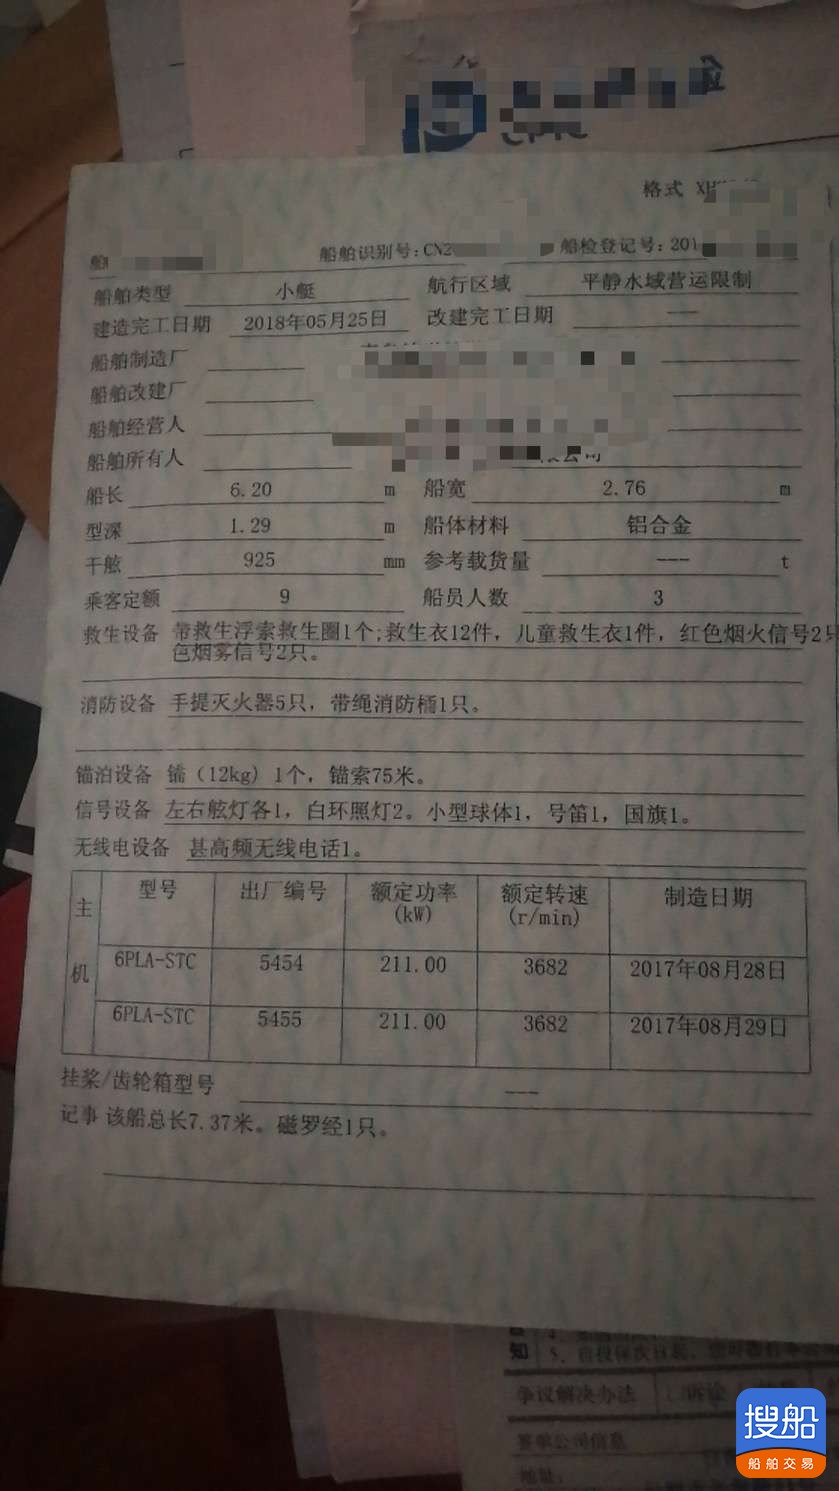 格式
船舶识别号:CN2 船检登记号:201
船舶类型 小艇 航行区域 平静水域营运限制
建造完工日期 2018年05月25日 改建完工日期 ---
船舶制造厂
船舶改建厂
船舶经营人
船舶所有人 公司
船长 6.20 m 船宽 2.76 m
型深 1.29 m 船体材料 铝合金
干舷 925 mm 参考载货量 --- t
乘客定额 9 船员人数 3
救生设备 带救生浮索救生圈1个;救生衣12件，儿童救生衣1件，红色烟火信号2只
色烟雾信号2只。
消防设备 手提灭火器5只，带绳消防桶1只。
锚泊设备 锚（12kg) 1个，锚索75米。
信号设备 左右舷灯各1，白环照灯2。小型球体1，号笛1，国旗1。
无线电设备 甚高频无线电话1。
主机 型号 出厂编号 额定功率(kW) 额定转速(r/min) 制造日期
6PLA-STC 5454 211.00 3682 2017年08月28日
6PLA-STC 5455 211.00 3682 2017年08月29日
挂桨/齿轮箱型号 ---
记事 该船总长7.37米。磁罗经1只。
知
争议解决办法 诉讼
签单公司信息
地址:
搜船
船舶交易